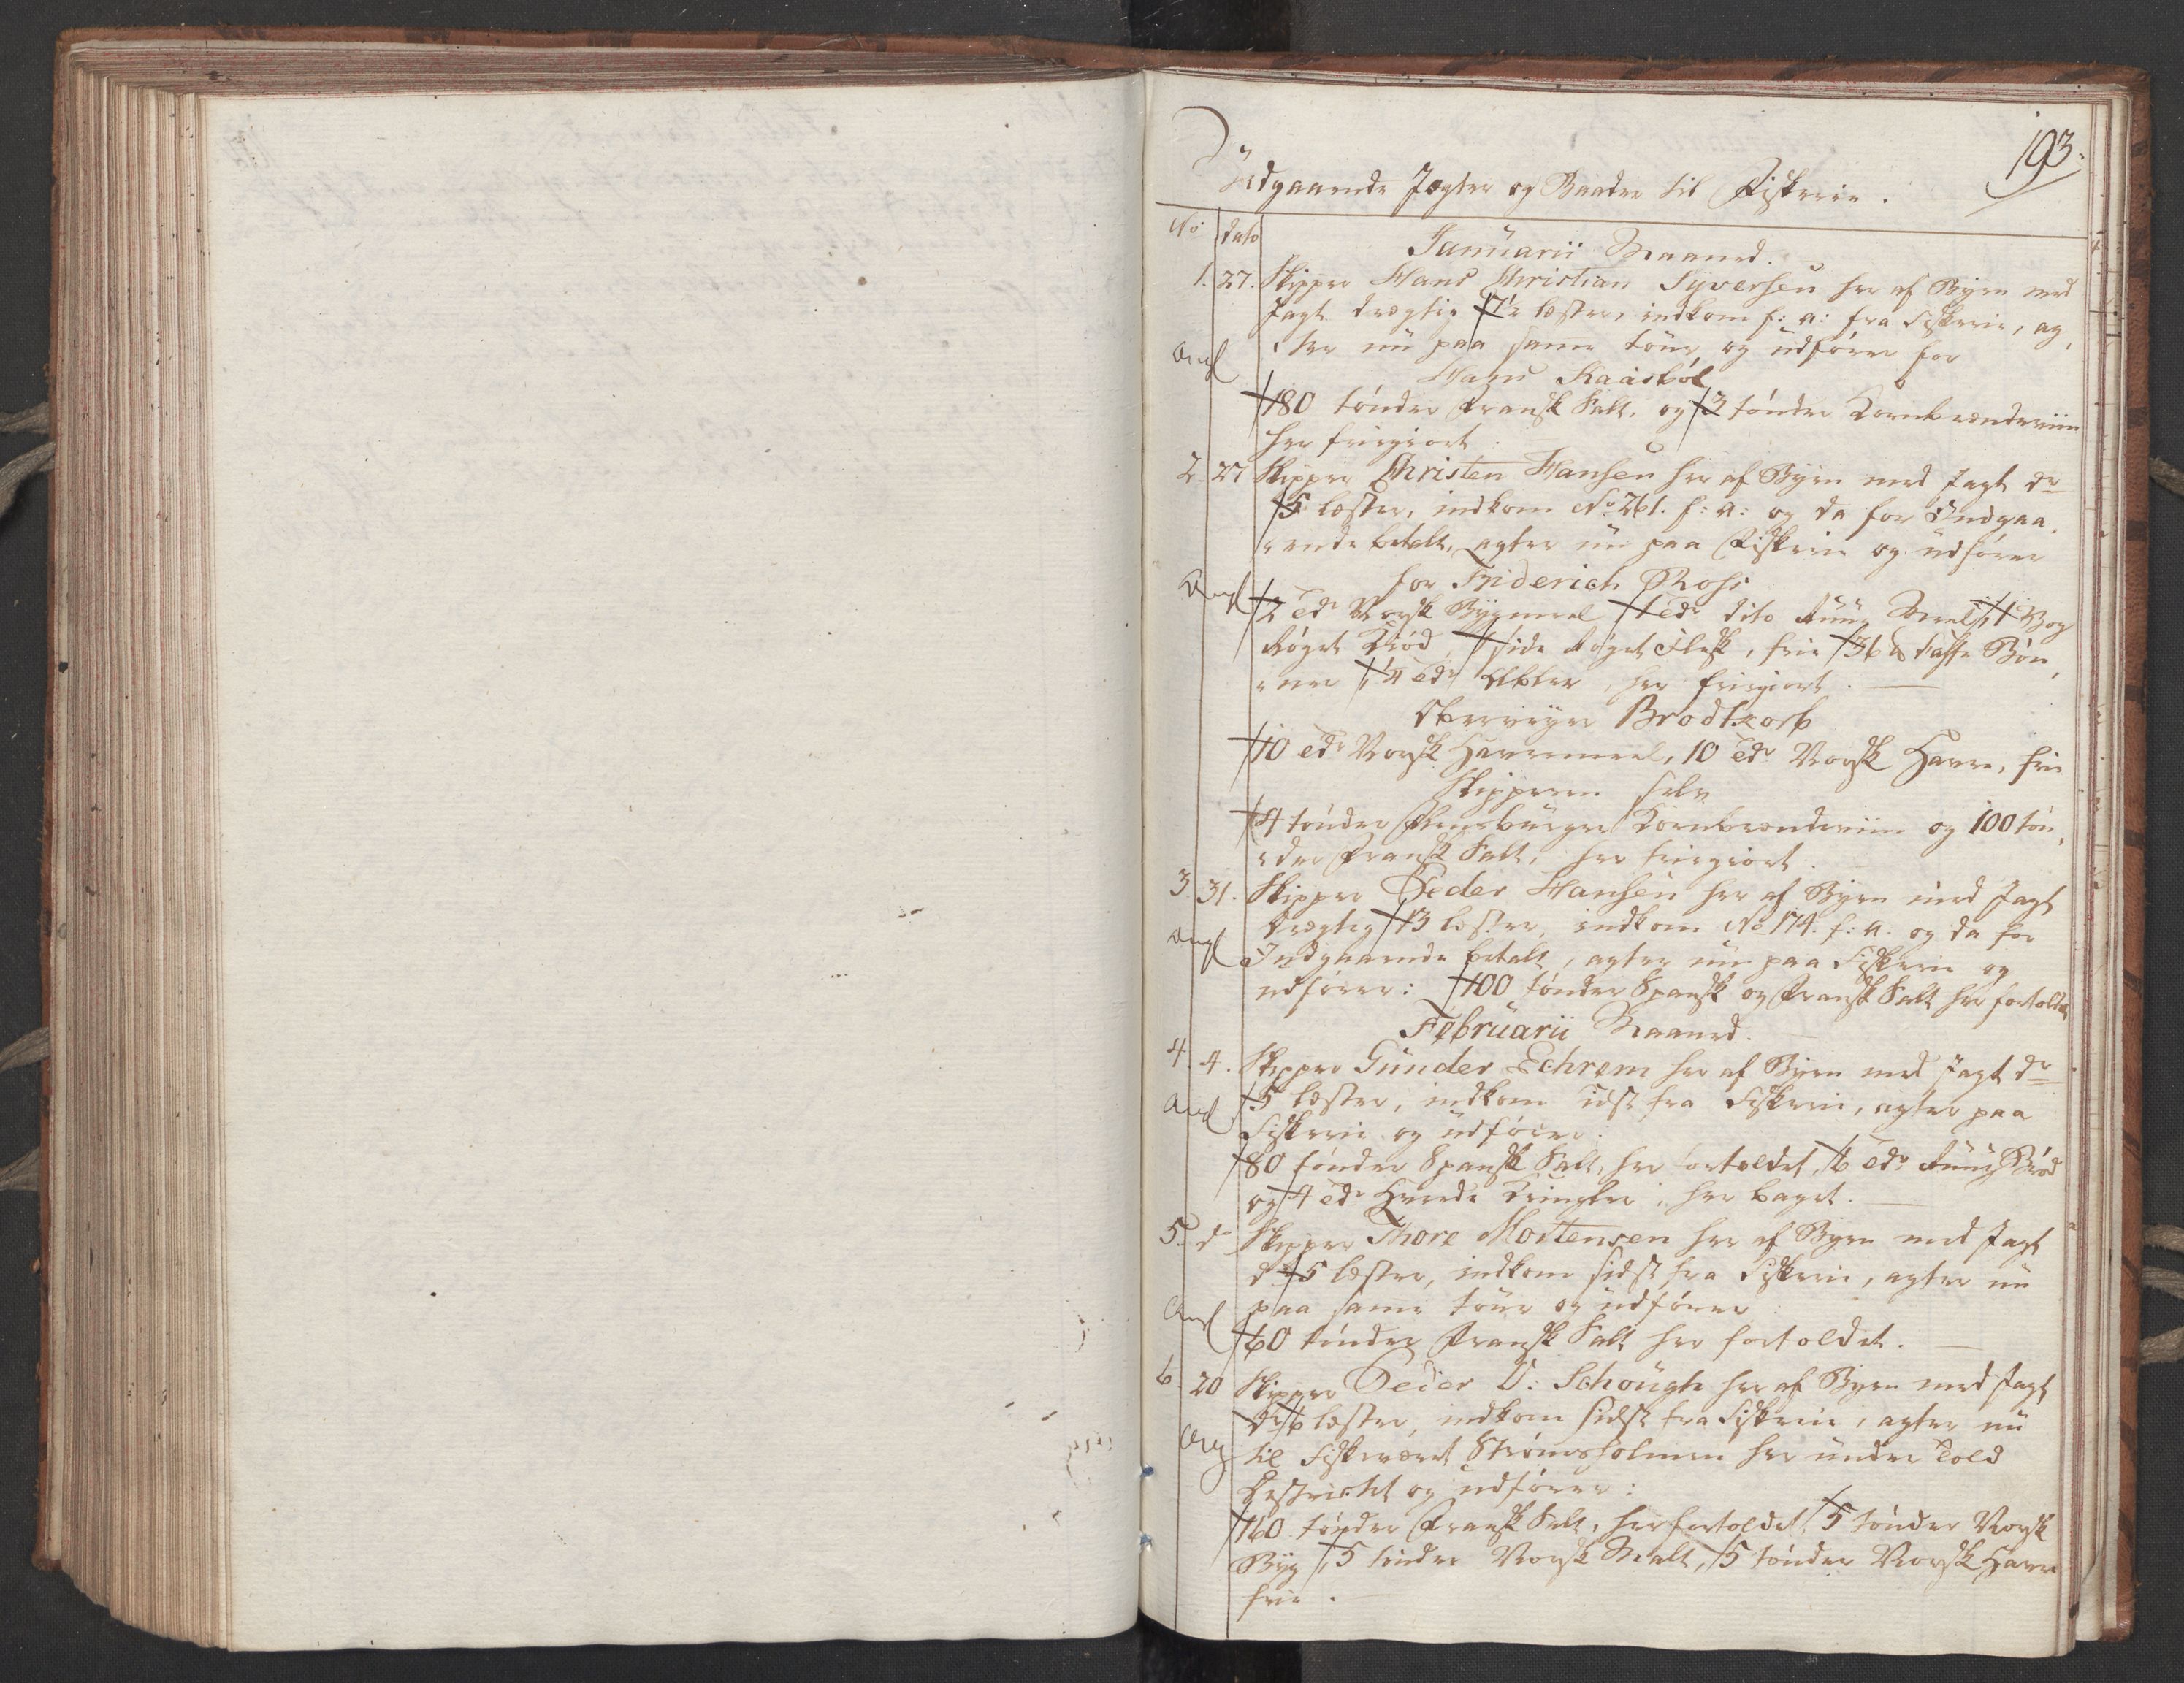 193.
Udgaaende Jagter og Baader til Fiskerie.
No dato
Januarii Maaned.
1. 27. Skipper Hans Christian Syversen her af Byen med
Jagt drægtig 7½ læster, indkom f: a: fra Fiskerie, ag„
„ter nu paa samme tour og udfører for
Hans Kaasbøl
180 tønder Fransk Salt, og 3 tønder Kornbrændeviin
her friegiort.
2. 27 Skipper Christen Hansen her af Byen med Jagt dr
5 læster, indkom No 261. f: a: og da for Indgaa„
„ende betalt, agter nu paa Fiskerie og udfører
for Friderich Ross
2 tdr Norsk Bygmeel 1 tdr ditoRuug Meel, 1 Vog
Røget Kiød, 1 side Røget Flesk, frie 36 ℔ Caffe Bøn„
„ner, ¼ tdr Æbler, her friegiort.
Oberveyer Brodtkorb
10 tdr Norsk Havremeel, 10 tdr Norsk Havre, frie
Skipperen selv
4 tønder Flensburger Kornbrændeviin og 100 tøn„
„der Fransk Salt, her friegiort.
3 31. Skipper Peder Hansen her af Byen med Jagt
drægtig 3 læster, indkom No 174. f: a: og da for
Indgaaende betalt, agter nu paa Fiskerie og
udfører: 100 tønder Spansk og Fransk Salt her fortoldet
Februarii Maaned.
4. 4. Skipper Gunder Echrem her af Byen med Jagt dr
5 læster, indkom sidst fra Fiskerie, agter paa
Fiskerie og udfører:
80 tønder Spansk Salt, her fortoldet, 6 tdr Ruug Brød
og 4 tdr Hvede Kringler, her baget.
5. do Skipper Thore Mortensen her af Byen med Jagt
dr 5 læster, indkom sidst fra Fiskerie, agter nu
paa samme tour og udfører:
60 tønder Fransk Salt her fortoldet.
6 20 Skipper Peder D: Schough her af Byen med Jagt
dr 6 læster, indkom sidst fra Fiskerie, agter nu
til Fiskeværet Strømsholmen her under Told
Destrictet og udfører:
160 tønder Fransk Salt, her fortoldet, 5 tønder Norsk
Byg, 5 tønder Norsk Malt, 5 tønder Norsk Havre
frie.